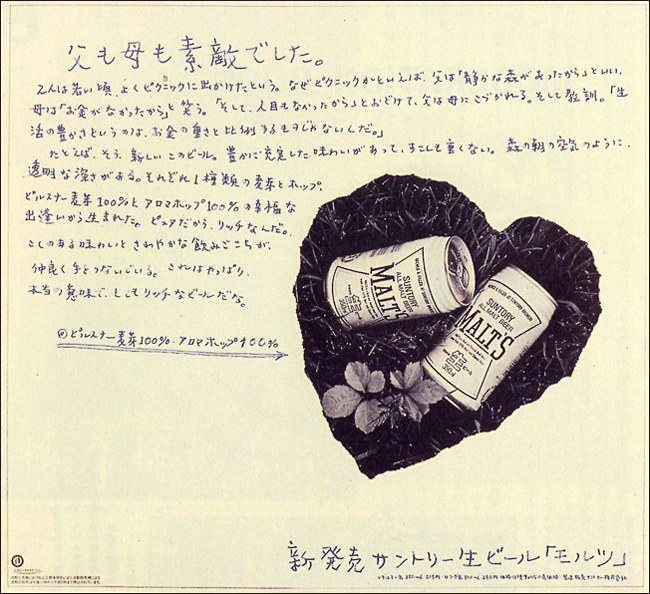 父も母も素敵でした。
2人は若い頃、よくピクニックに出かけたという。なぜピクニックかといえば、父は「静かな森があったから」といい、
母は「お金がなかったから」と笑う。「そして、人目もなかったから」とおどけて、父は母にこづかれる。そして教訓。「生
活の豊かさというのは、お金の重さと比例するものじゃないんだ。」
たとえば、そう、新しいこのビール。豊かに充実した味わいがあって、すこしも重くない。森の朝の空気のように、
透明な深さがある。それぞれ1種類の麦芽とホップ。
ピルスナー麦芽100%とアロマホップ100%の幸福な
出逢いから生まれた。ピュアだから、リッチなんだ。
こくのある味わいとさわやかな飲みごこちが、
仲良く手をつないでいる。これはやっぱり、
本当の意味で、とてもリッチなビールだな。
ピルスナー麦芽100%・アロマホップ100%
SUNTORY
ALL MALT BEER
MALT'S
生ビール
350ml
SUNTORY
ALL MALT BEER
MALT'S
生ビール
350ml
新発売 サントリー生ビール「モルツ」